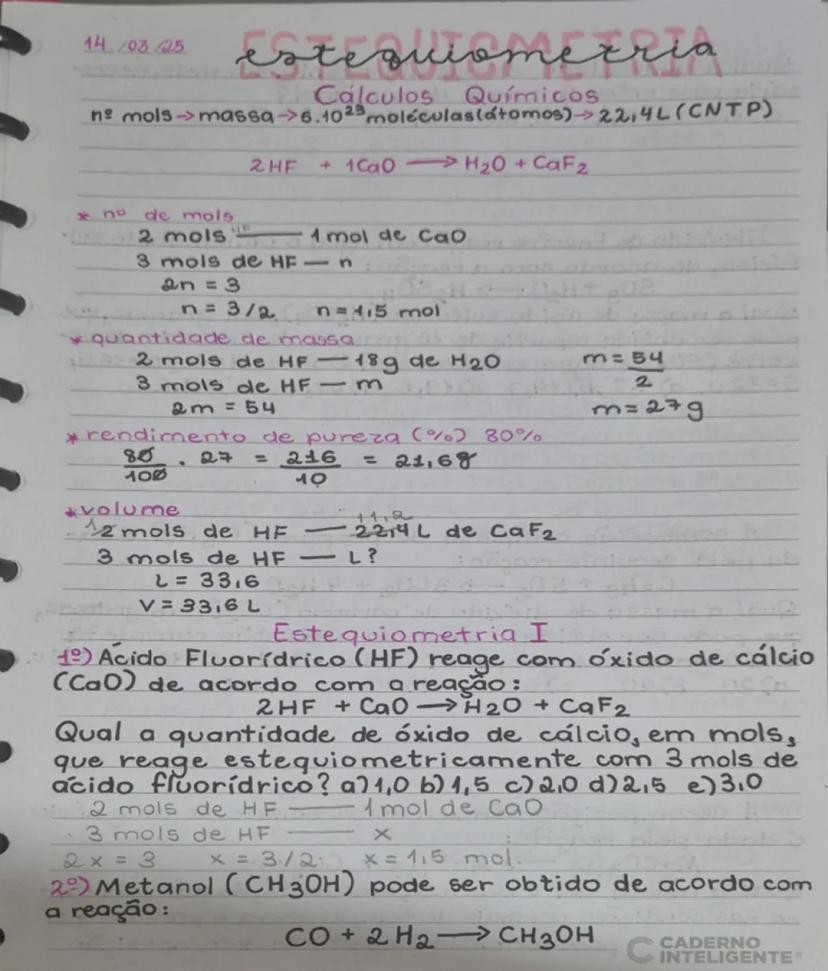 14 /03 /25
ESTEQUIOMETRIA
estequiometria
Cálculos Químicos
nº mols→massa→6.10²³moléculas(átomos)→22,4L(CNTP)
2HF + 1CaO ⟶ H₂O + CaF₂
* nº de mols
2 mols HF — 1 mol de CaO
3 mols de HF — n
2n = 3
n = 3/2 n = 1,5 mol
* quantidade de massa
2 mols de HF — 18g de H₂O m = 54/2
3 mols de HF — m
2m = 54 m = 27g
* rendimento de pureza (%) 80%
80/100 . 27 = 216/10 = 21,6g
* volume
12 mols de HF — 22,4L de CaF₂ 11,2
3 mols de HF — L?
L = 33,6
V = 33,6 L
Estequiometria I
1º) Ácido Fluorídrico (HF) reage com óxido de cálcio
(CaO) de acordo com a reação:
2HF + CaO ⟶ H₂O + CaF₂
Qual a quantidade de óxido de cálcio, em mols,
que reage estequiometricamente com 3 mols de
ácido fluorídrico? a)1,0 b)1,5 c)2,0 d)2,5 e)3,0
2 mols de HF — 1 mol de CaO
3 mols de HF — x
2x = 3 x = 3/2 x = 1,5 mol.
2º) Metanol (CH3OH) pode ser obtido de acordo com
a reação:
CO + 2H₂ ⟶ CH3OH
CADERNO
INTELIGENTE®